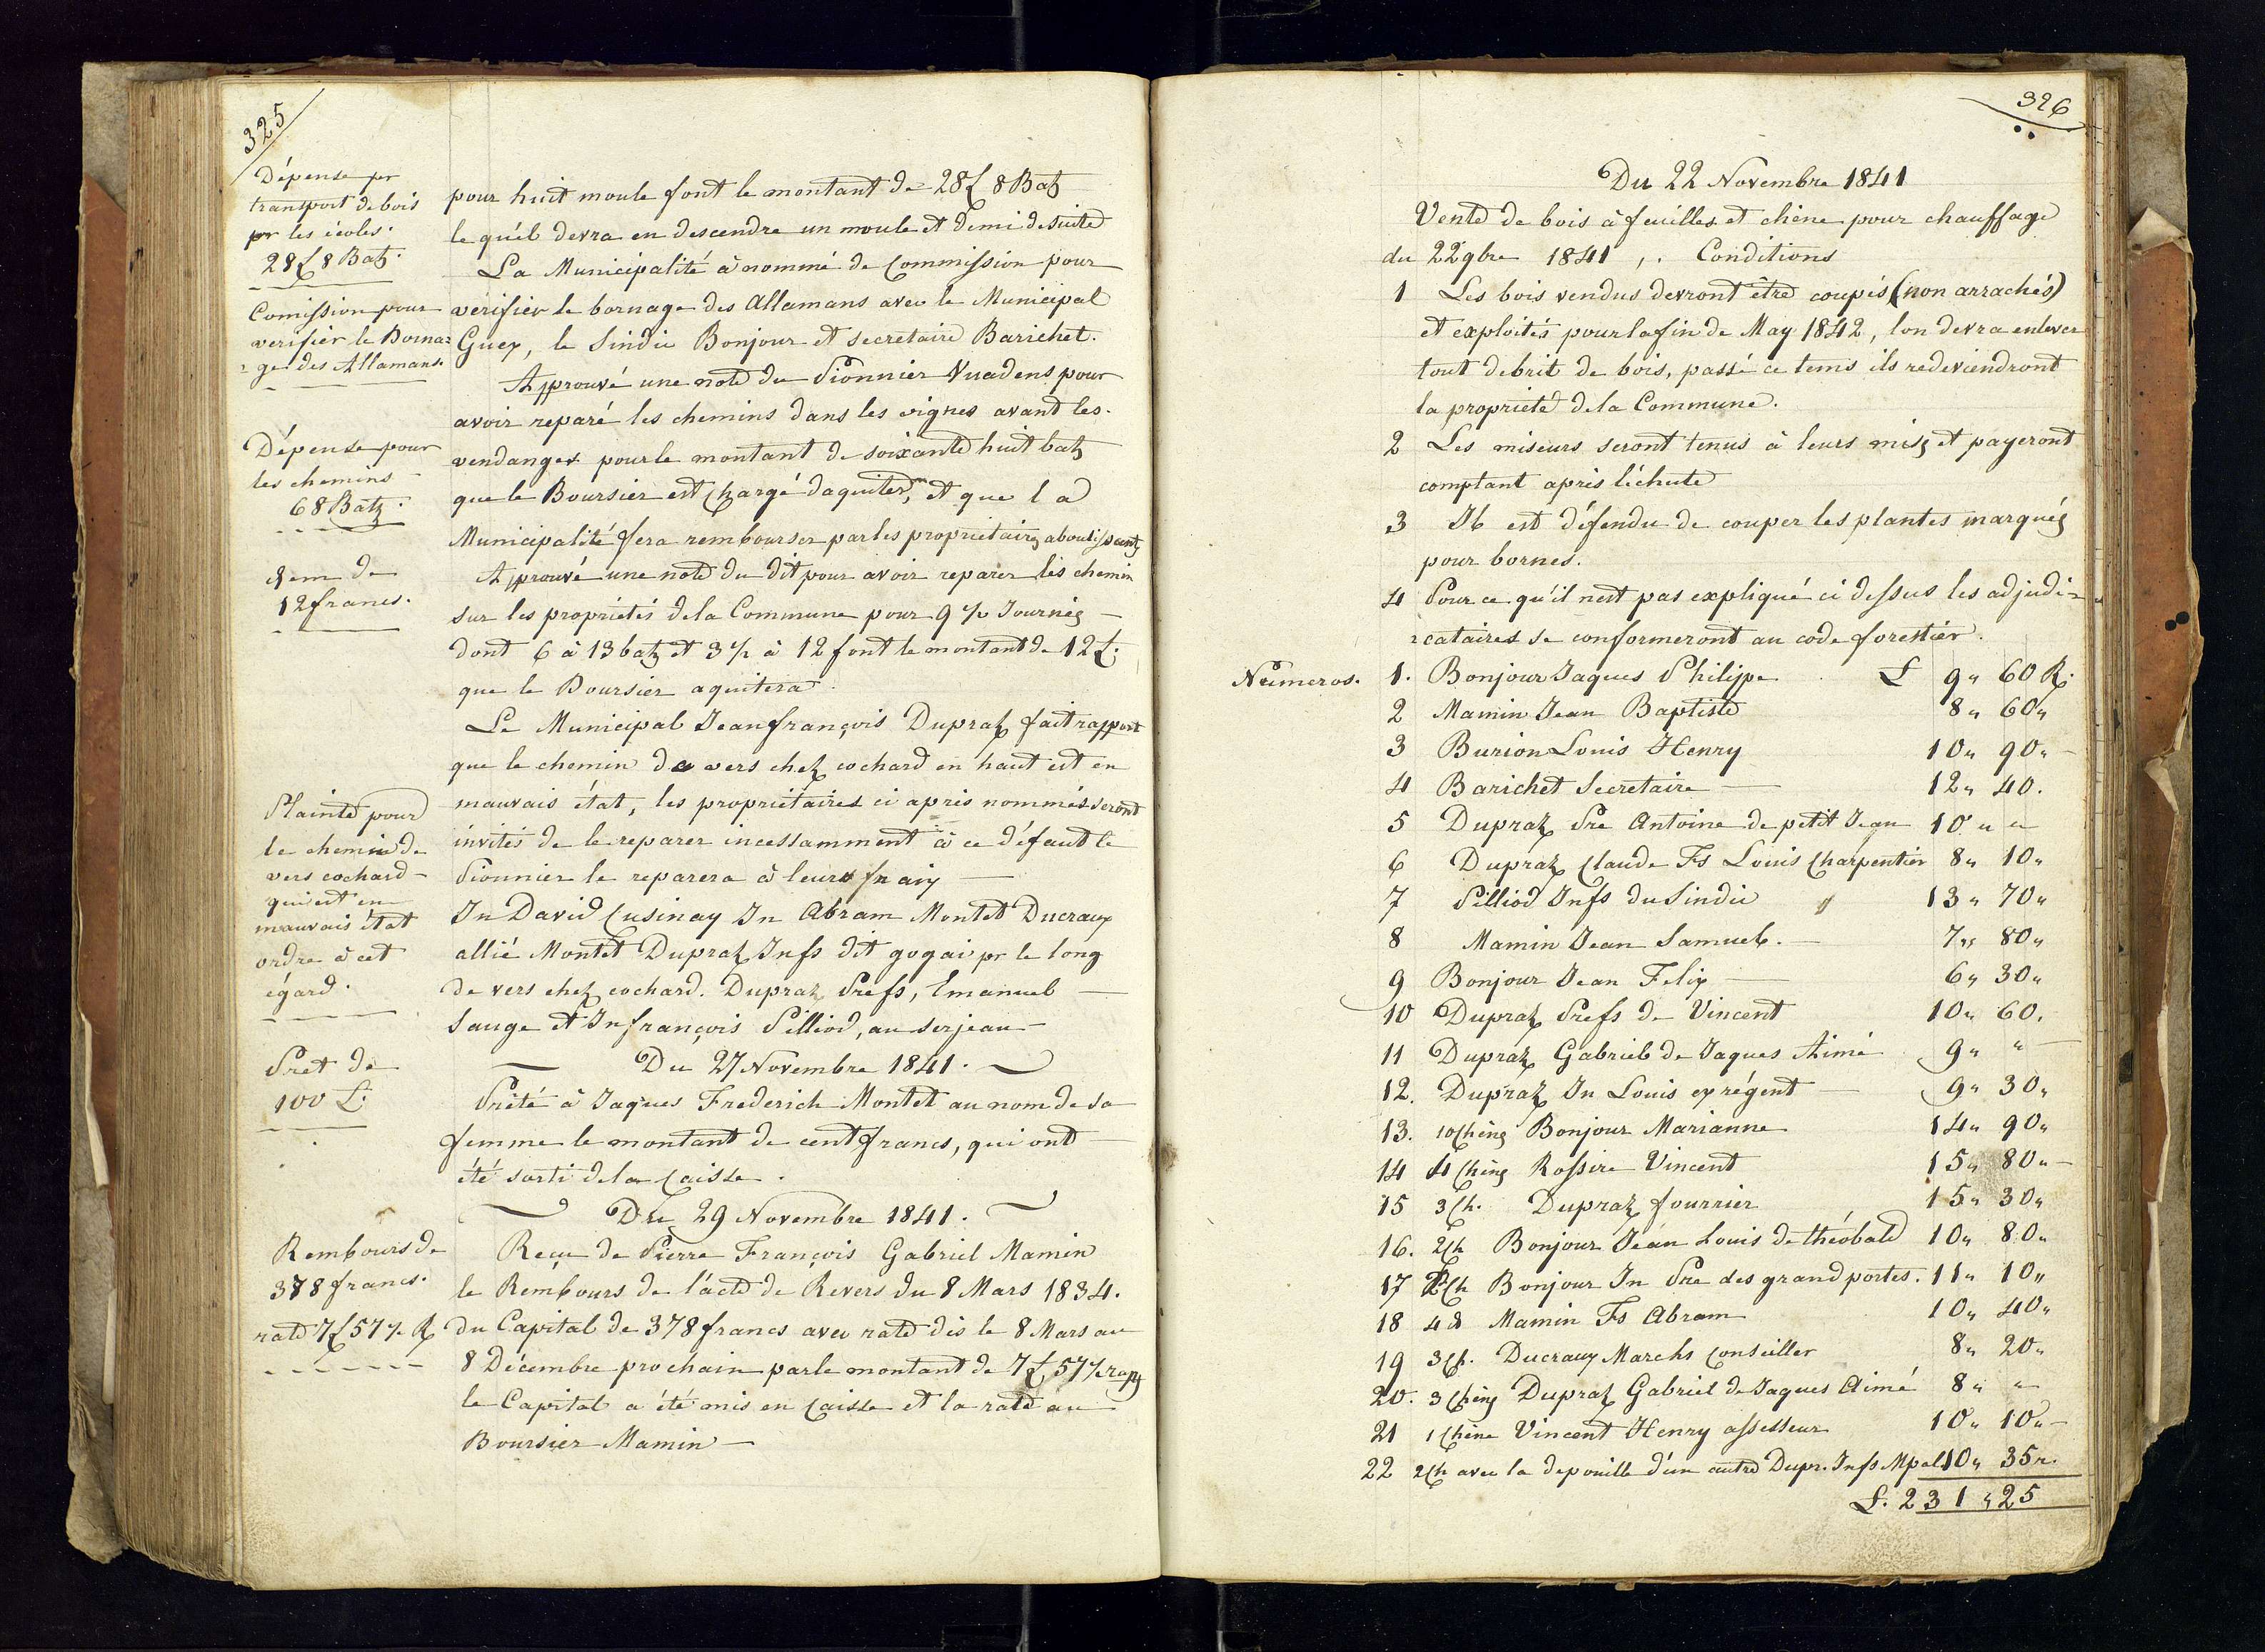 325
Dépense pr
transport de bois
pr les écoles.
28 £ 8 Batz.
Comission pour
verifier le Borna=
=ge des Allamans.
Dépense pour
les chemins
68 Batz.
Idem de
12 francs.
Plainte pour
le chemin de
vers cochard
qui est en
mauvais état
ordre à cet
égard.
Pret de
100 £.
Rembours de
378 francs.
rate 7 £ 57 ½ R
pour huit moule font le montant de 28 £ 8 Batz
le quéil devra en descendre un moule et demi desuite
La Municipalité à nommé de Commission pour
verifier le bornage des Allamans avec le Municipal
Guex, le Sindic Bonjour et secretaire Barichet.
Approuvé une note du Pionnier Vuadens pour
avoir reparé les chemins dans les vignes avant les
vendanges pour le montant de soixante huit batz
que le Boursier est chargé daquiter, et que la
Municipalité fera rembourser par les proprietaires aboutissants
Approuvé une note du dit pour avoir reparer les chemin
sur les propriétés de la Commune pour 9 ½ Journés
dont 6 à 13 batz et 3 ½ à 12 font le montant de 12 £.
que le Boursier aquitera.
Le Municipal Jean françois Dupraz fait rapport
que le chemin de vers chez cochard en haut est en
mauvais état, les propriétaires ci après nommés seront
invités de le reparer incessamment à ce défaut le
Pionnier le reparera à leurs frais
Jn David Cusinay Jn Abram Montet Ducraux
allié Montet Dupraz Jnfs dit gogai pr le long
de vers chez cochard. Dupraz Prefs, Emanuel
Sauge et Jn françois Pilliod, au serjean
Du 27 Novembre 1841.
Prété à Jaques Frederich Montet au nom de sa
femme le montant de cent francs, qui ont
été sorti de la Caisse.
Du 29 Novembre 1841.
Reçu de Pierre François Gabriel Mamin
le Rembours de l'acte de Revers du 8 Mars 1834.
du Capital de 378 francs avec rate dès le 8 Mars au
8 Décembre prochain par le montant de 7 £ 57 ½ raps
le Capital a été mis en Caisse et la rate au
Boursier Mamin
326
Du 22 Novembre 1841
Vente de bois à feuilles et chêne pour chauffage
du 22 9bre 1841,. Conditions
1 Les bois vendus devront être coupés (non arrachés)
et exploités pour la fin de May 1842, lon devra enlever
tout debrit de bois, passé ce tems ils redeviendront
la propriété de la Commune.
2 Les miseurs seront tenus à leurs mises et payeront
comptant après l'échute
3 Il est défendu de couper les plantes marqués
pour bornes.
4 Pour ce qu'il n'est pas expliqué ci dessus les adjudi=
=cataires se conformeront au code forestier.
Numeros. 1. Bonjour Jaques Philippe £ 9 " 60 R.
2 Mamin Jean Baptiste 8 " 60 "
3 Burion Louis Henry 10 " 90 "
4 Barichet Secretaire 12 " 40.
5 Dupraz Pre Antoine de petit Jean 10 " "
6 Dupraz Claude Fs Louis Charpentier 8 " 10 "
7 Pilliod Jnfs du Sindic 13 " 70 "
8 Mamin Jean Samuel. 7 " 80 "
9 Bonjour Jean Felix 6 " 30 "
10 Dupraz Prefs de Vincent 10 " 60.
11 Dupraz Gabriel de Jaques Aimé 9 " "
12. Dupraz Jn Louis exrégent 9 " 30 "
13. 10 Chênes Bonjour Marianne 14 " 90 "
14 4 Chênes Rossire Vincent 15 " 80 "
15 3 Ch. Dupraz fourrier 15 " 30 "
16. 2 Ch Bonjour Jean Louis de théobald 10 " 80 "
17 2 Ch Bonjour Jn Pre des grand portes. 11 " 10 "
18 4 d Mamin Fs Abram 10 " 40 "
19 3 Ch. Ducraux Marchs Conseiller 8 " 20 "
20. 3 Chênes Dupraz Gabriel de Jaques Aimé 8 " "
21 1 Chêne Vincent Henry assesseur 10 " 10 "
22 2 Ch avec la depouille d'un autre Dupr. Jnfs Mpal 10 " 35 r.
£. 231 " 25